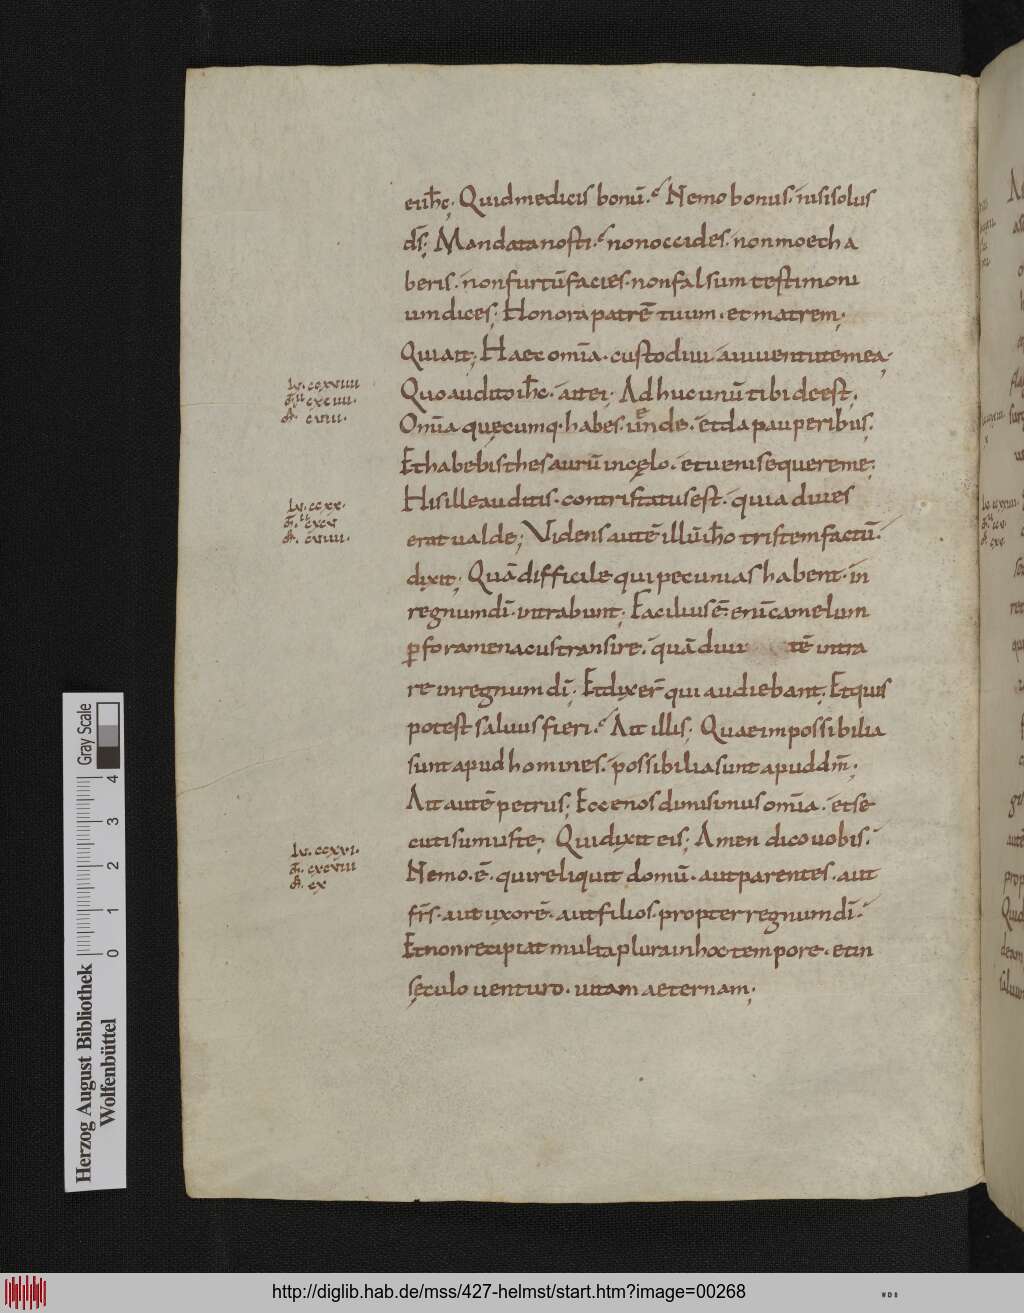 ei ih̅c; Quid me dicis bonū. Nemo bonus. nisi solus
d̅s; Mandata nosti. non occides. non moecha
beris. non furtū facies. non falsum testimoni
um dices; Honora patrē tuum. et matrem;
Qui ait; Haec omīa. custodiui a iuuentute mea;
Lv. ccxviiii
Quo audito ih̅c. ait ei; Adhuc unū tibi deest;
Omīa quęcumq. habes. uende. et da pauperibus;
Et habebis thesaurū in cęlo. et ueni sequere me;
Lv. ccxx.
His ille auditis. contristatus est. quia diues
erat ualde; Videns autē illū ih̅c tristem factū.
dixit; Quā difficile qui pecunias habent. in
regnum dī. intrabunt; Facilius ē. enī camelum
p foramen acus transire. quā diui tē intra
re in regnum dī; Et dixer̄ qui audiebant; Et quis
potest saluus fieri. Ait illis; Quae impossibilia
sunt apud homines. possibilia sunt apud dm̄;
Ait autē petrus; Ecce nos dimisimus omīa. et se
cuti sumus te; Qui dixit eis; Amen dico uobis.
Lv. ccxxi.
Nemo. ē. qui reliquit domū. aut parentes. aut
fr̄s. aut uxorē. aut filios. propter regnum dī.
Et non recipiat multa plura in hoc tempore. et in
sęculo uenturo. uitam aeternam;
Gray Scale
4 3 2 1 0
Herzog August Bibliothek
Wolfenbüttel
http://diglib.hab.de/mss/427-helmst/start.htm?image=00268